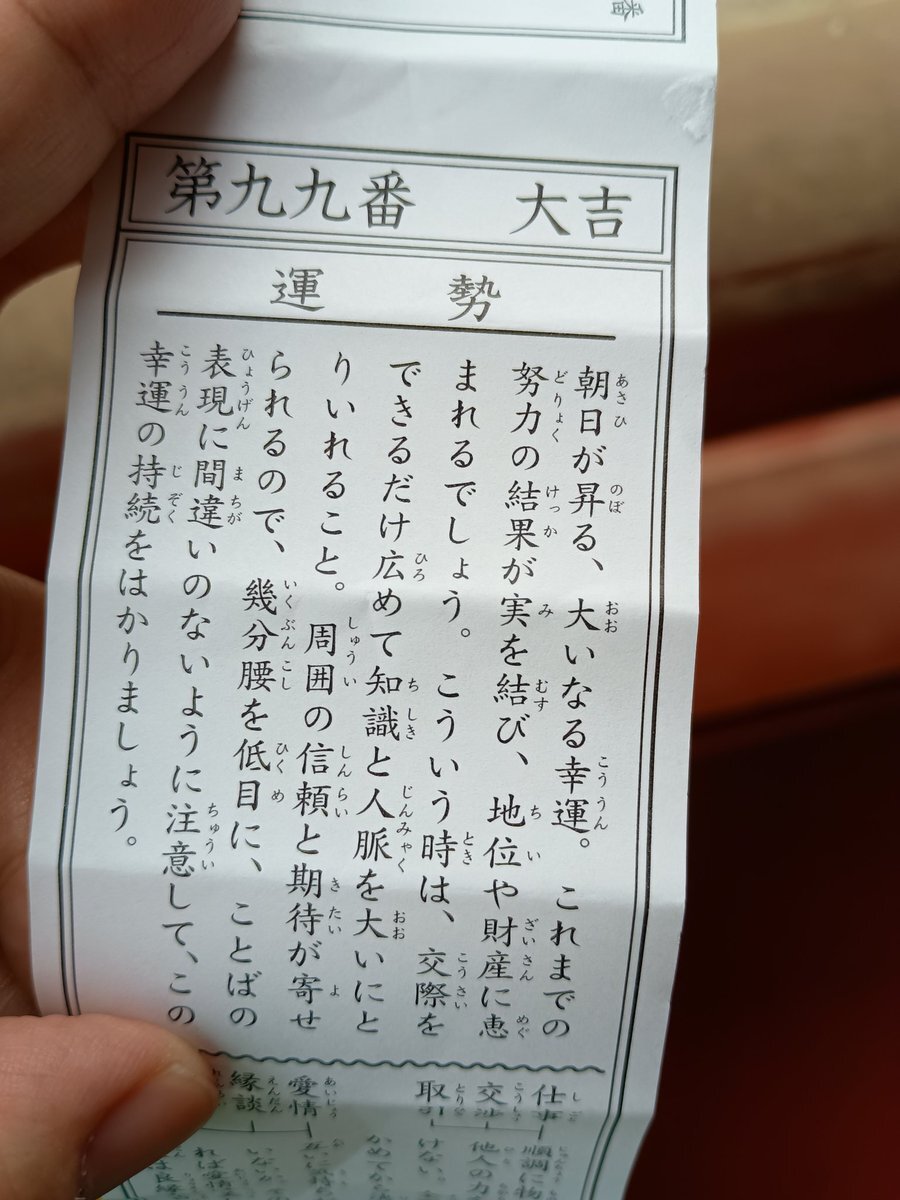 番
第九九番 大吉
運勢
朝日が昇る、大いなる幸運。これまでの
努力の結果が実を結び、地位や財産に恵
まれるでしょう。こういう時は、交際を
できるだけ広めて知識と人脈を大いにと
りいれること。周囲の信頼と期待が寄せ
られるので、幾分腰を低目に、ことばの
表現に間違いのないように注意して、この
幸運の持続をはかりましょう。
仕事 順調に物
交渉 他人の力
取引 けない
愛情
縁談